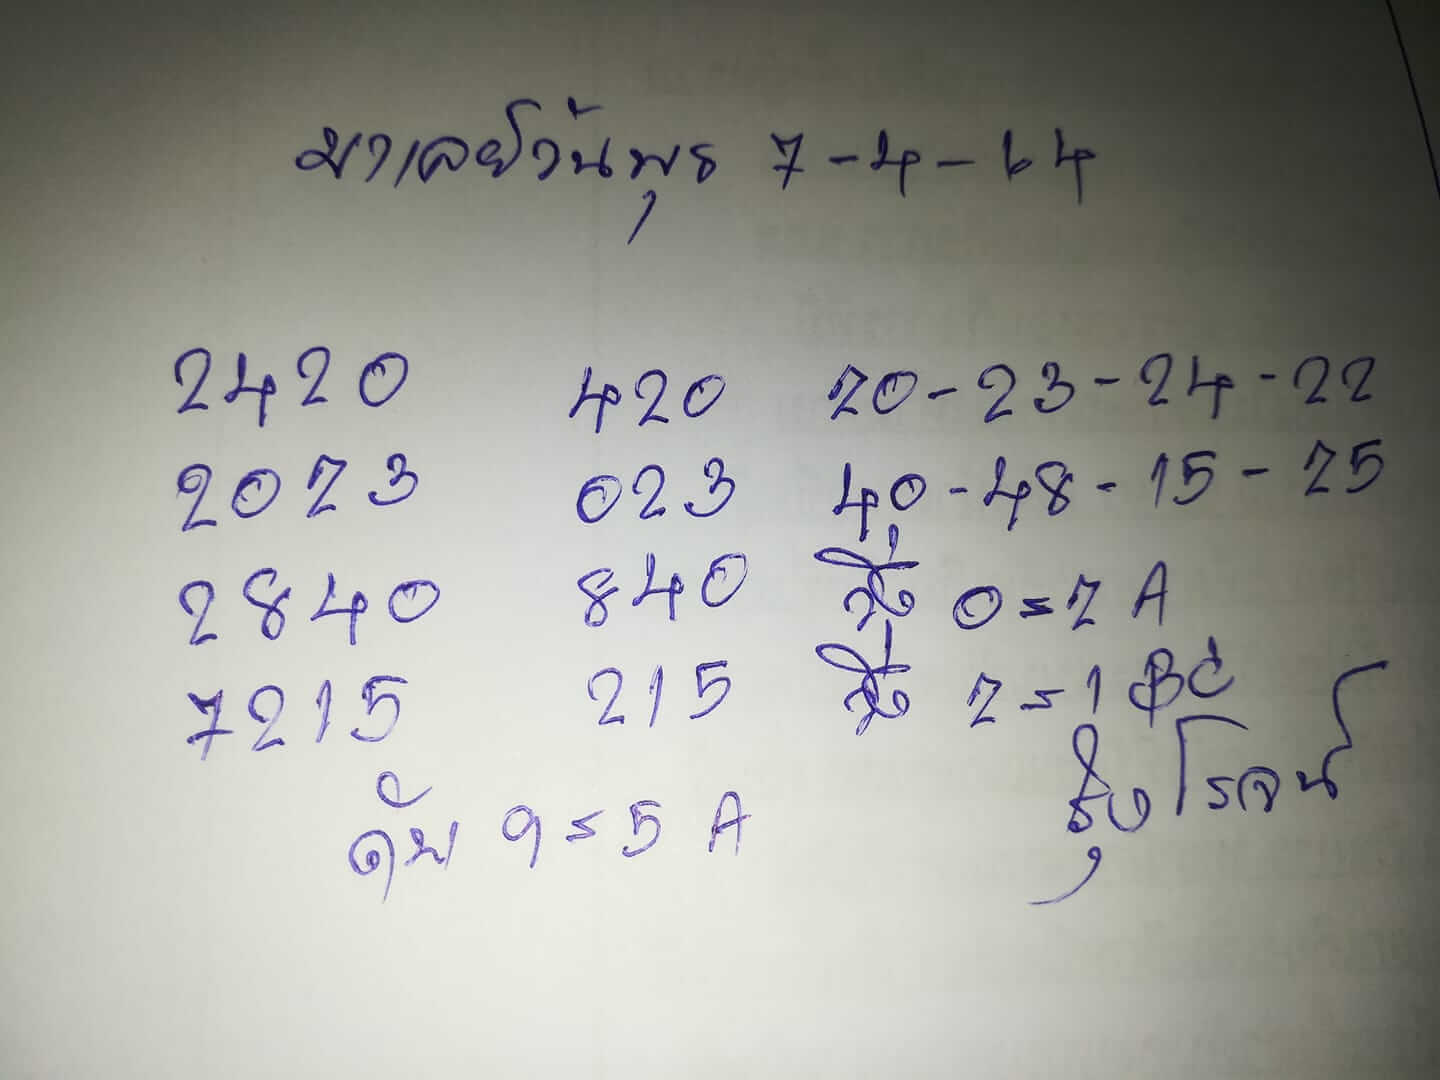 มาเลย์วันพุธ 7-4-64
2420 420 20-23-24-22
2023 023 40-48-15-25
2840 840 สี่ 0=2 A
7215 215 สี่ 2=1 BC
ดับ 9=5 A รุ่งโรจน์